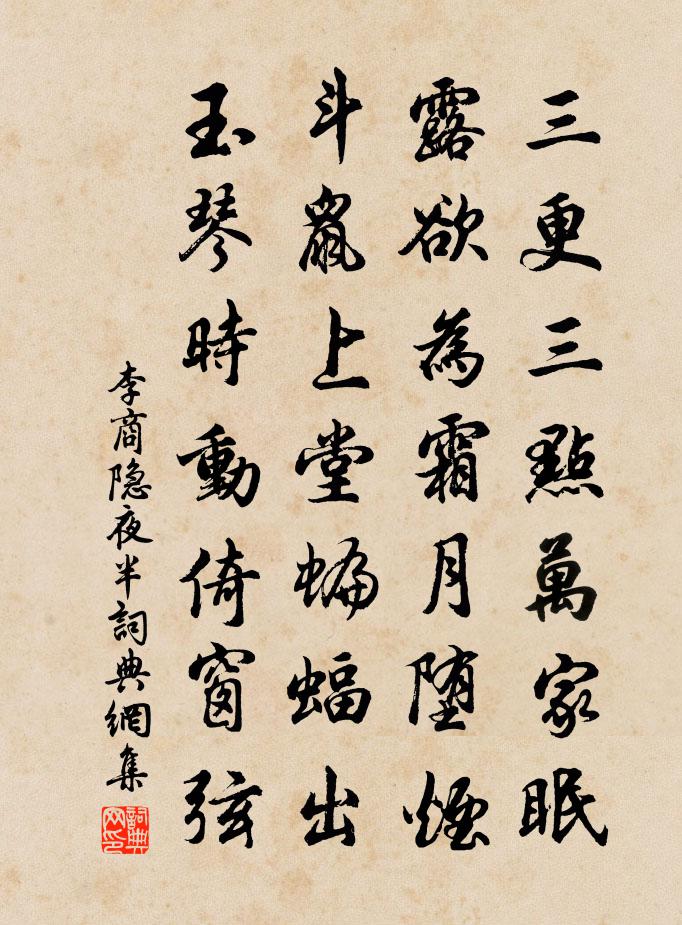 三更三點萬家眠
露欲為霜月堕煙
斗鼠上堂蝙蝠出
玉琴時動倚窗弦
李商隐夜半詞典網集
詞典網印